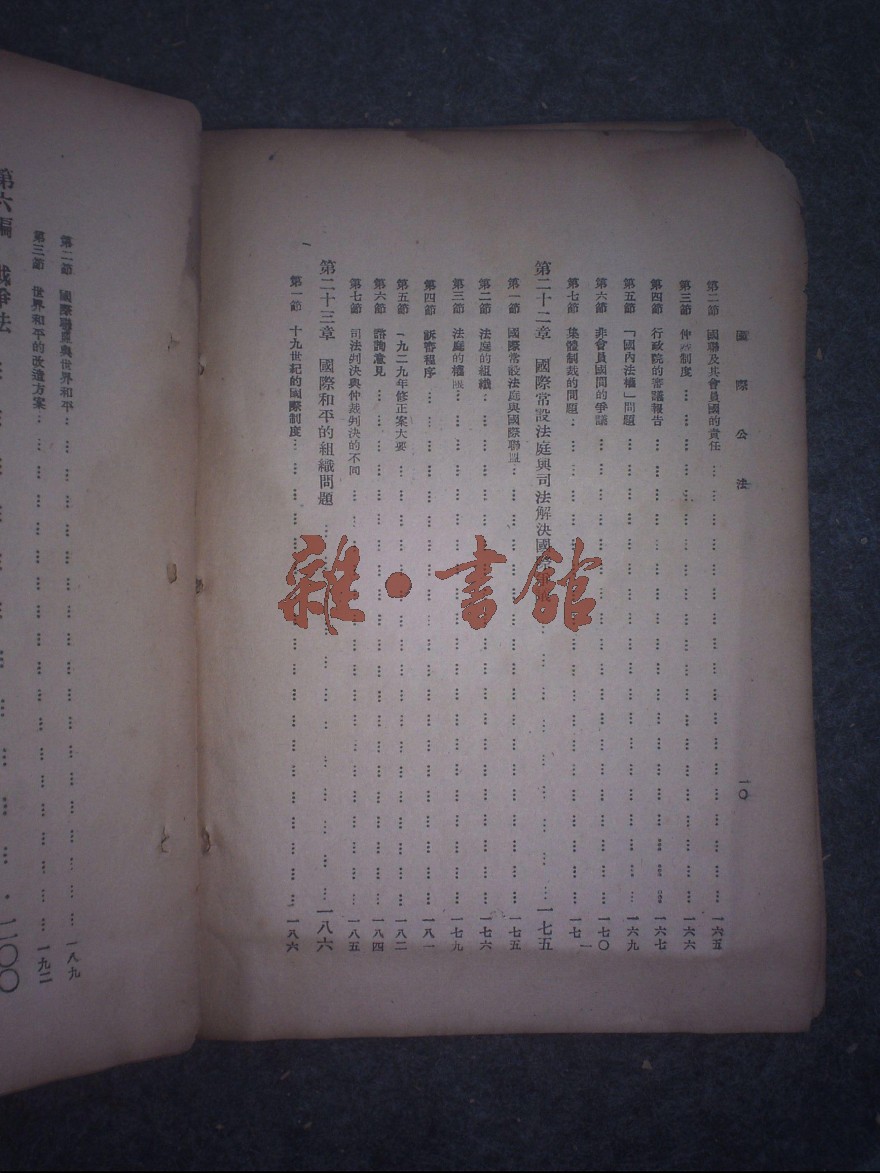 國際公法
一〇
第二節 國聯及其會員國的責任 一六五
第三節 仲裁制度 一六六
第四節 行政院的審議報告 一六七
第五節 「國內法權」問題 一六九
第六節 非會員國間的爭議 一七〇
第七節 集體制裁的問題 一七一
第二十二章 國際常設法庭與司法解決國 一七五
第一節 國際常設法庭與國際聯盟 一七五
第二節 法庭的組織 一七六
第三節 法庭的權限 一七九
第四節 訴審程序 一八一
第五節 一九二九年修正案大要 一八二
第六節 諮詢意見 一八四
第七節 司法判決與仲裁判決的不同 一八五
第二十三章 國際和平的組織問題 一八六
第一節 十九世紀的國際制度 一八六
第二節 國際聯盟與世界和平 一八九
第三節 世界和平的改造方案 一九二
第六編 戰爭法 二〇〇
雜·書館